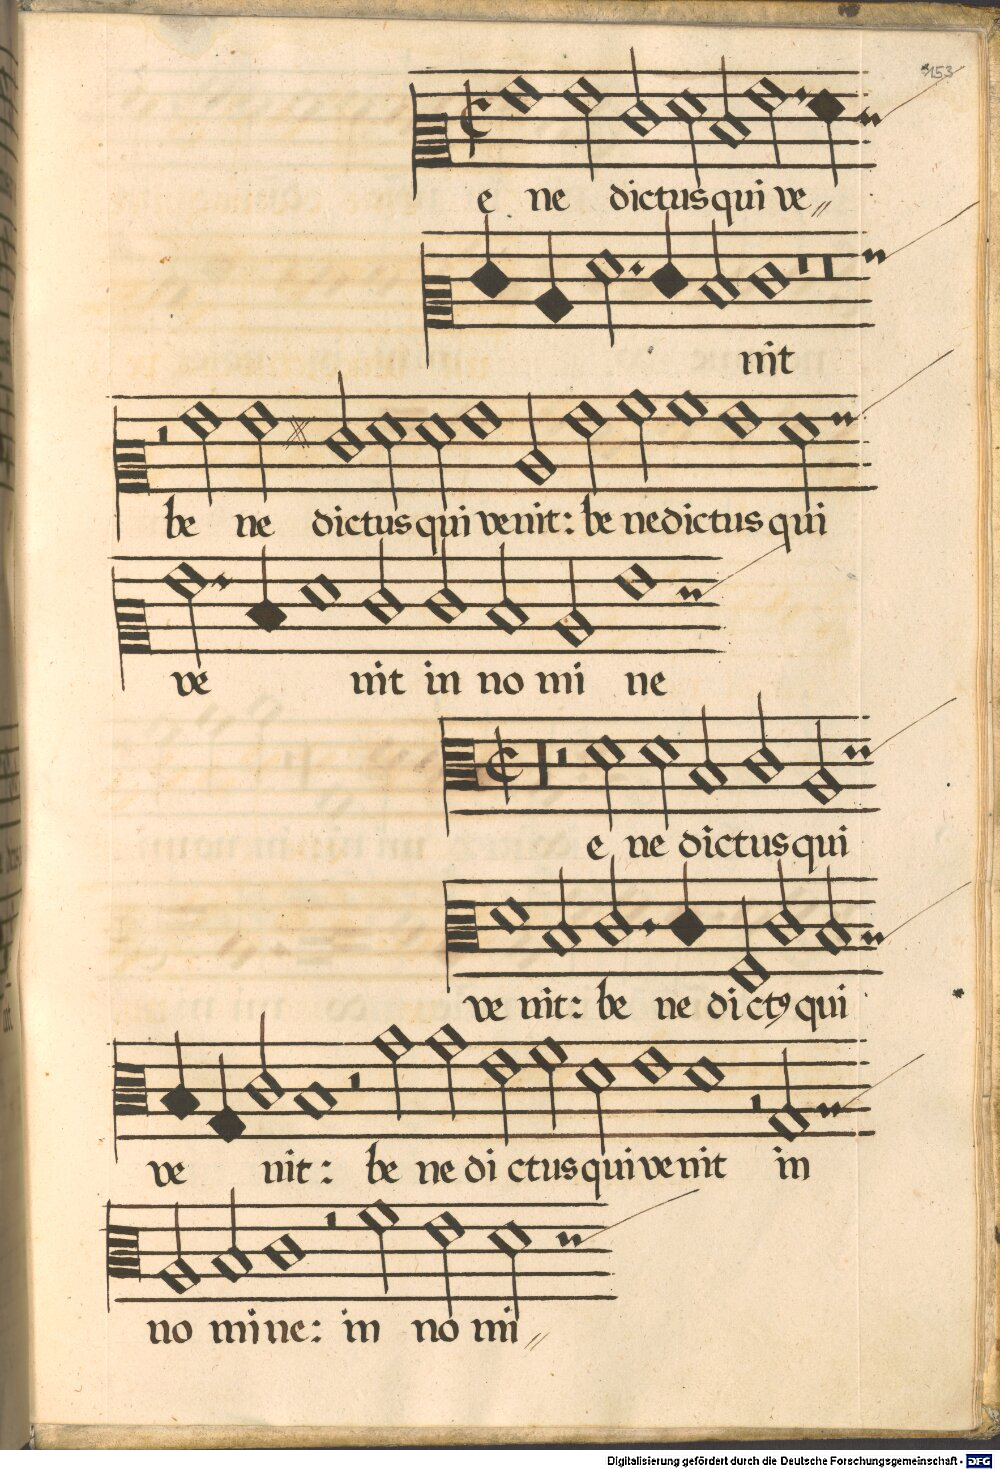 153
e ne dictus qui ve
nit
be ne dictus qui venit: be nedictus qui
ve nit in no mi ne
e ne dictus qui
ve nit: be ne dictꝰ qui
ve nit: be ne di ctus qui venit in
no mine: in no mi
Digitalisierung gefördert durch die Deutsche Forschungsgemeinschaft - DFG